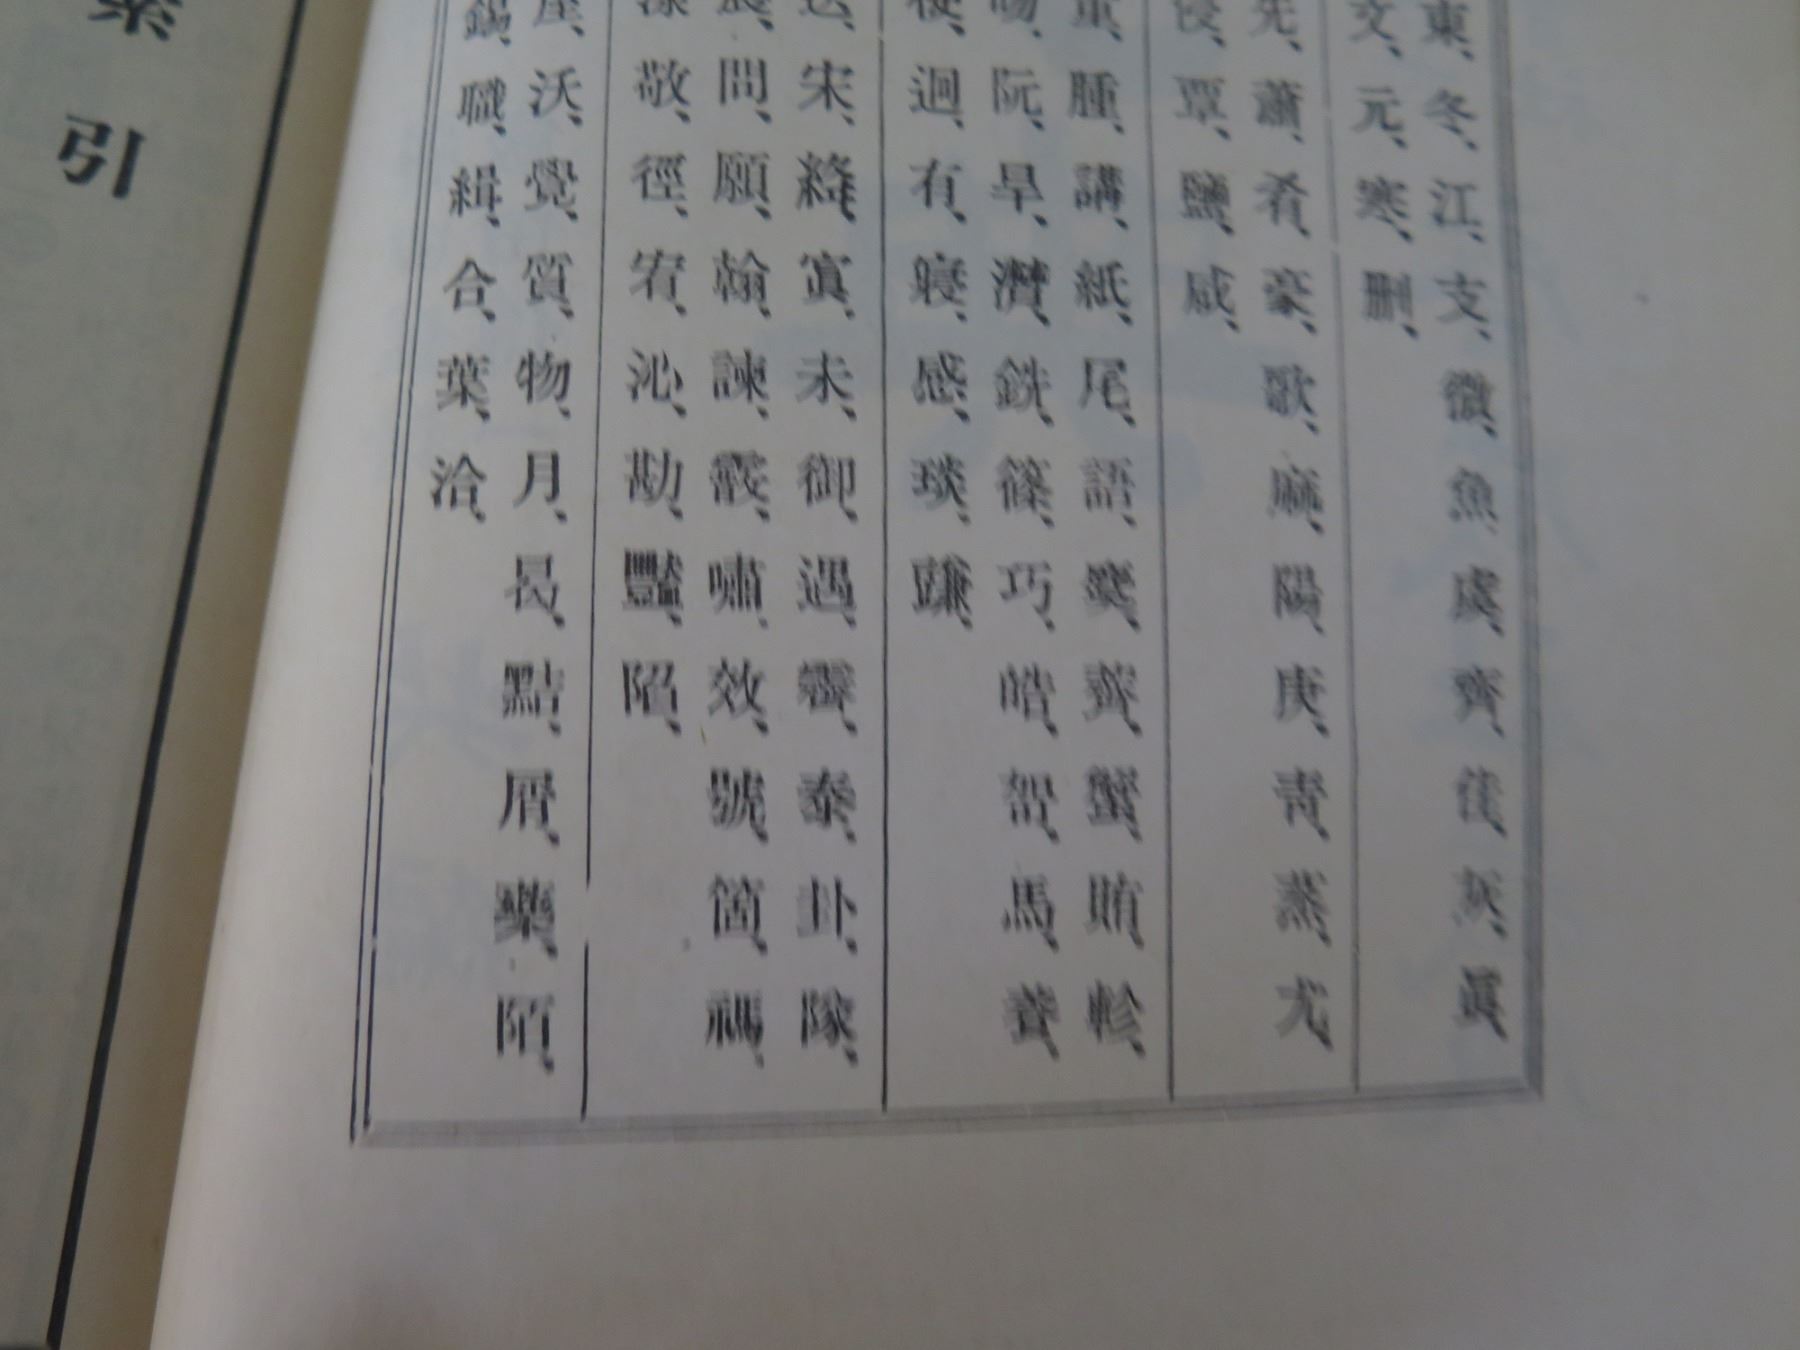 東、冬、江、支、微、魚、虞、齊、佳、灰、眞、
文、元、寒、刪、
先、蕭、肴、豪、歌、麻、陽、庚、青、蒸、尤、
侵、覃、鹽、咸、
董、腫、講、紙、尾、語、麌、薺、蟹、賄、軫、
吻、阮、旱、潸、銑、篠、巧、皓、哿、馬、養、
梗、迥、有、寢、感、琰、豏、
送、宋、絳、寘、未、御、遇、霽、泰、卦、隊、
震、問、願、翰、諫、霰、嘯、效、號、箇、禡、
漾、敬、徑、宥、沁、勘、豔、陷、
屋、沃、覺、質、物、月、曷、黠、屑、藥、陌、
錫、職、緝、合、葉、洽、
索引